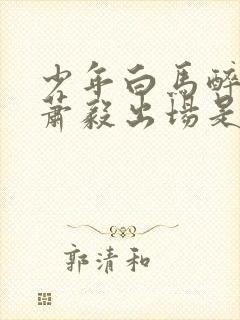 少年白馬醉
蕭毅出場是
郭清和